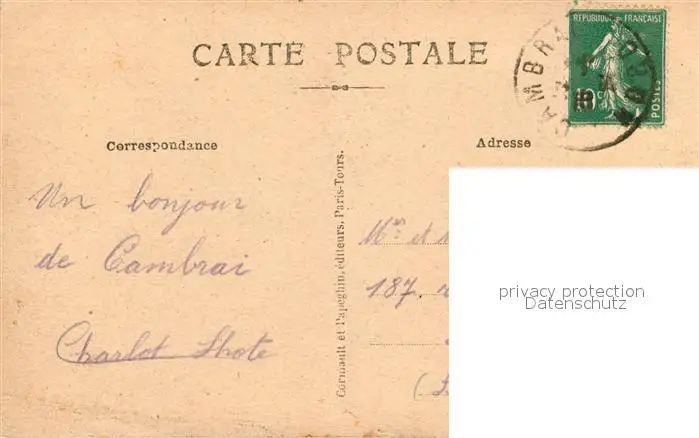 CARTE POSTALE
REPUBLIQUE FRANÇAISE
POSTES
CAMBRAI
Correspondance
Adresse
Un bonjour
de Cambrai
Charlot Lhote
Cormault et Papeghin, éditeurs, Paris-Tours.
Mr et
187,
privacy protection
Datenschutz